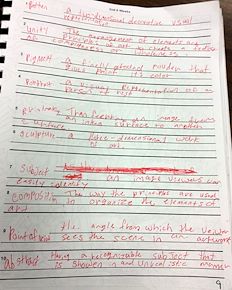 Pattern a two-dimensional decorative visual
Unity the arrangement of elements and
of art to create a feeling
of completeness
Pigment a finely ground powder that
gives paint its color
Portrait a visual representation of a
person
an image
inked surface to another
Sculpture a three-dimensional work
of art
7 Subject
an image viewers can
easily identify
8 Composition The way the principles are used
to organize the elements of
art
the angle from which the viewer
9 Point of view sees the scene in an artwork
10 Abstract Having a recognizable subject that
is shown in an unrealistic manner
9